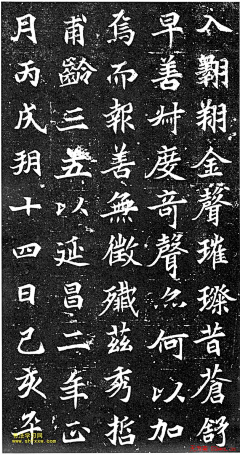 入翱翔金聲璀璨昔蒼舒
早善叔度奇聲亦何以加
焉而報善無徵殲茲秀哲
甫齡三五以延昌二年正
月丙戌朔十四日己亥卒